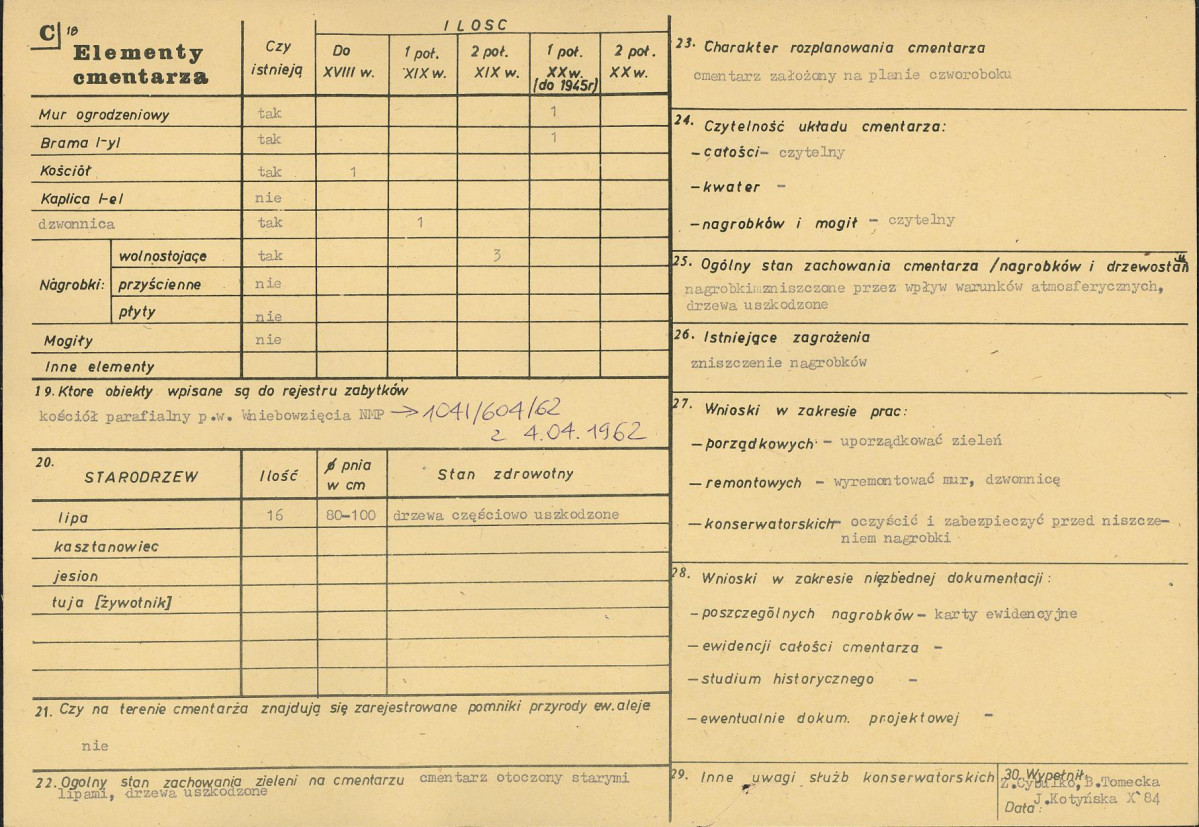 C 18
Elementy cmentarza
Czy istnieją
ILOSC
Do XVIII w.
1 poł. XIX w.
2 poł. XIX w.
1 poł. XX w. (do 1945r)
2 poł. XX w.
Mur ogrodzeniowy tak 1
Brama I-yl tak 1
Kościół tak 1
Kaplica I-el nie
dzwonnica tak 1
Nagrobki: wolnostojące tak 3
przyścienne nie
płyty nie
Mogiły nie
Inne elementy
19. Ktore obiekty wpisane są do rejestru zabytków
kościół parafialny p.w. Wniebowzięcia NMP → 1041/604/62
z 4.04.1962
20. STARODRZEW Ilość ø pnia w cm Stan zdrowotny
lipa 16 80-100 drzewa częściowo uszkodzone
kasztanowiec
jesion
tuja [żywotnik]
21. Czy na terenie cmentarża znajdują się zarejestrowane pomniki przyrody ew. aleje
nie
22. Ogolny stan zachowania zieleni na cmentarzu cmentarz otoczony starymi
lipami, drzewa uszkodzone
23. Charakter rozplanowania cmentarza
cmentarz założony na planie czworoboku
24. Czytelność układu cmentarza:
- całości - czytelny
- kwater -
- nagrobków i mogił - czytelny
25. Ogólny stan zachowania cmentarza /nagrobków i drzewostanu
nagrobki zniszczone przez wpływ warunków atmosferycznych,
drzewa uszkodzone
26. Istniejące zagrożenia
zniszczenie nagrobków
27. Wnioski w zakresie prac:
- porządkowych - uporządkować zieleń
- remontowych - wyremontować mur, dzwonnicę
- konserwatorskich - oczyścić i zabezpieczyć przed niszcze-
niem nagrobki
28. Wnioski w zakresie niezbędnej dokumentacji:
- poszczególnych nagrobków - karty ewidencyjne
- ewidencji całości cmentarza -
- studium historycznego -
- ewentualnie dokum. projektowej -
29. Inne uwagi służb konserwatorskich
30. Wypełnił:
Z.Cybulko, B.Tomecka
J.Kotyńska X 84
Data: